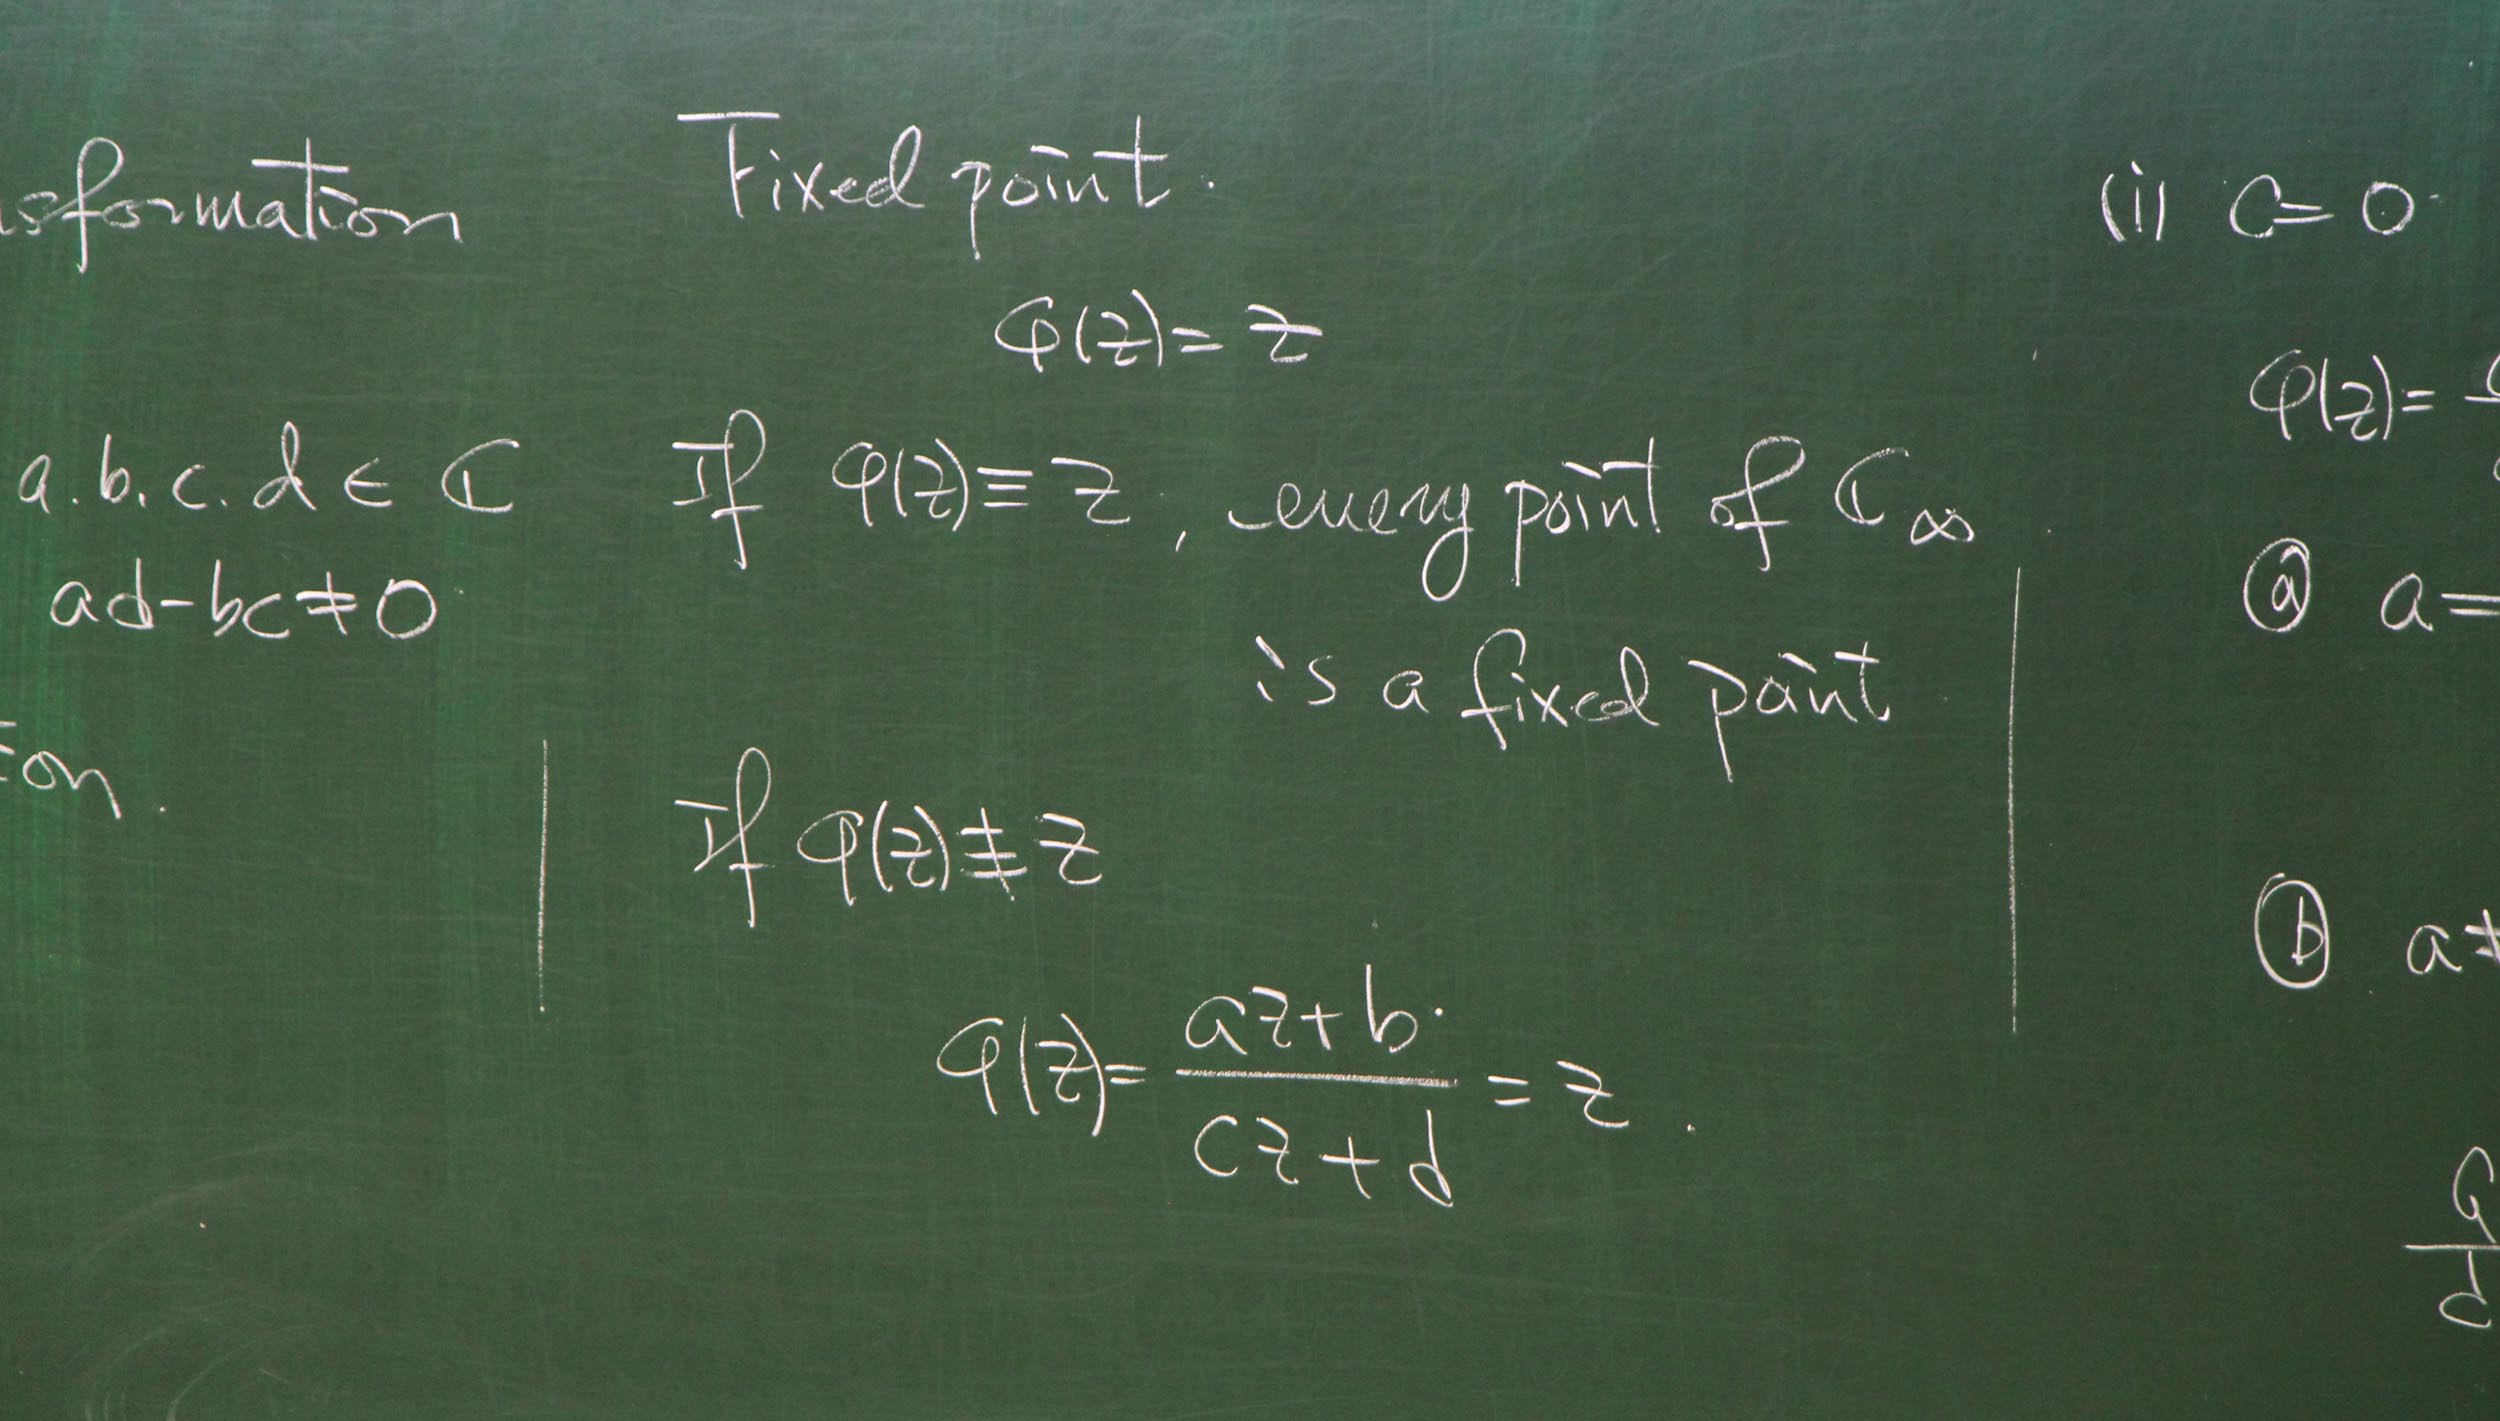 sformation
a.b.c.d ∈ ℂ
ad-bc≠0
Fixed point.
φ(z)=z
If φ(z)≡z, every point of ℂ∞
is a fixed point
If φ(z)≢z
φ(z)= (az+b)/(cz+d) = z.
(i) c=0
φ(z)=
ⓐ a=
ⓑ a≠